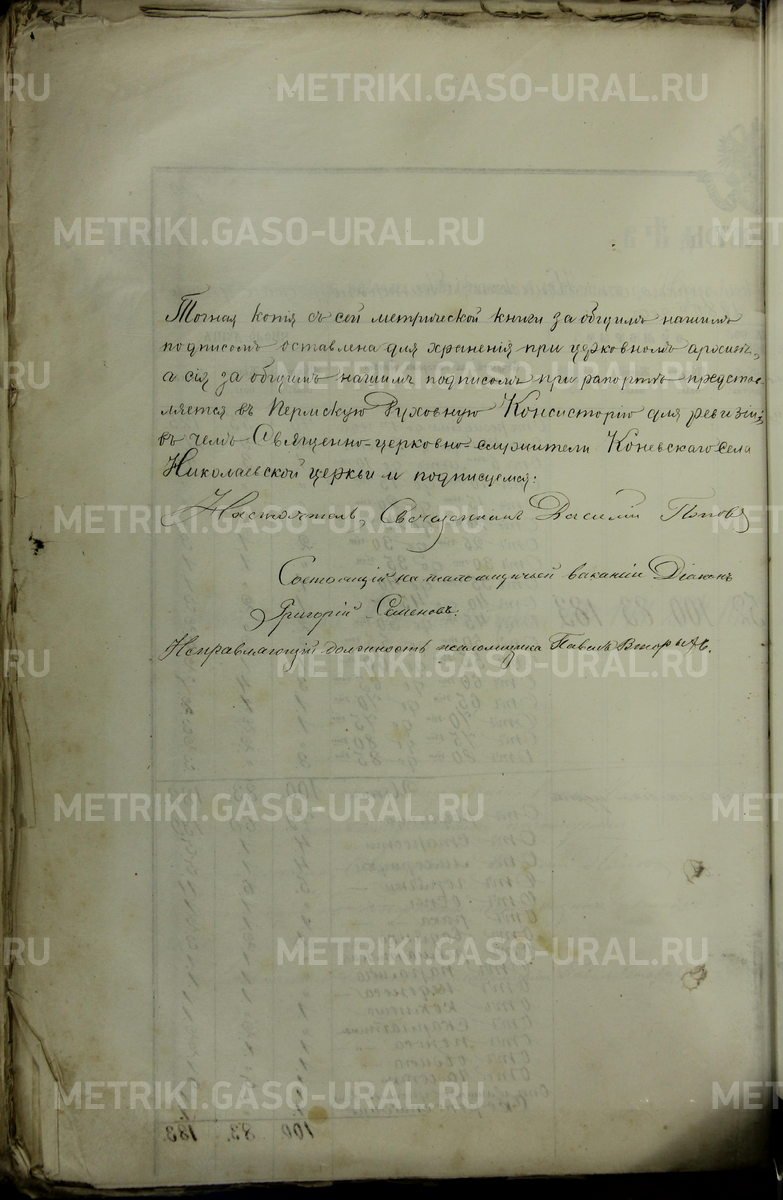 Точная копія съ сей метрической книги за общимъ нашимъ
подписомъ оставлена для храненія при церковномъ архивѣ,
а сія за общимъ нашимъ подписомъ при рапортѣ предста-
вляется въ Пермскую Духовную Консисторію для ревизіи;
въ чемъ Священно-церковно-служители Коневскаго села
Николаевской церкви и подписуемся:
Настоятель, Священникъ Василій Поповъ
Состоящій на псаломщической ваканіи Діаконъ
Григорій Семеновъ:
Исправляющій должность псаломщика Павелъ Вторыхъ.
METRIKI.GASO-URAL.RU
METRIKI.GASO-URAL.RU
METRIKI.GASO-URAL.RU
METRIKI.GASO-URAL.RU
METRIKI.GASO-URAL.RU
METRIKI.GASO-URAL.RU
METRIKI.GASO-URAL.RU
METRIKI.GASO-URAL.RU